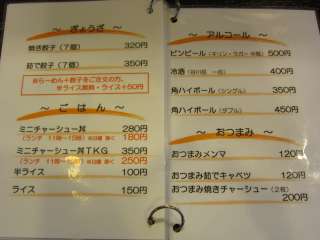 ～ ぎょうざ ～
焼き餃子（7個） 320円
茹で餃子（7個） 350円
※らーめん＋餃子をご注文の方、
半ライス無料・ライス＋50円
～ ごはん ～
ミニチャーシュー丼 280円
（ランチ 11時～15時 180円
ミニチャーシュー丼TKG 350円
（ランチ 11時～15時 250円
半ライス 100円
ライス 150円
～ アルコール ～
ビンビール（キリン・ラガー 中瓶） 500円
冷酒 400円
角ハイボール（シングル） 350円
角ハイボール（ダブル） 450円
～ おつまみ ～
おつまみメンマ 120円
おつまみ茹でキャベツ 120円
おつまみ焼きチャーシュー（2枚）
200円